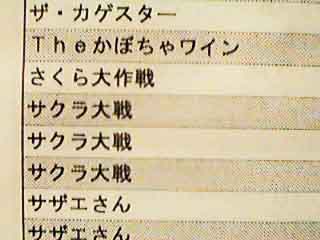 ザ・カゲスター
Ｔｈｅかぼちゃワイン
さくら大作戦
サクラ大戦
サクラ大戦
サクラ大戦
サザエさん
サザエさん